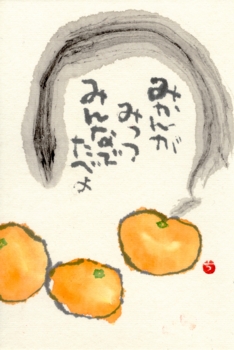 みかんが
みっつ
みんなで
たべよ
う